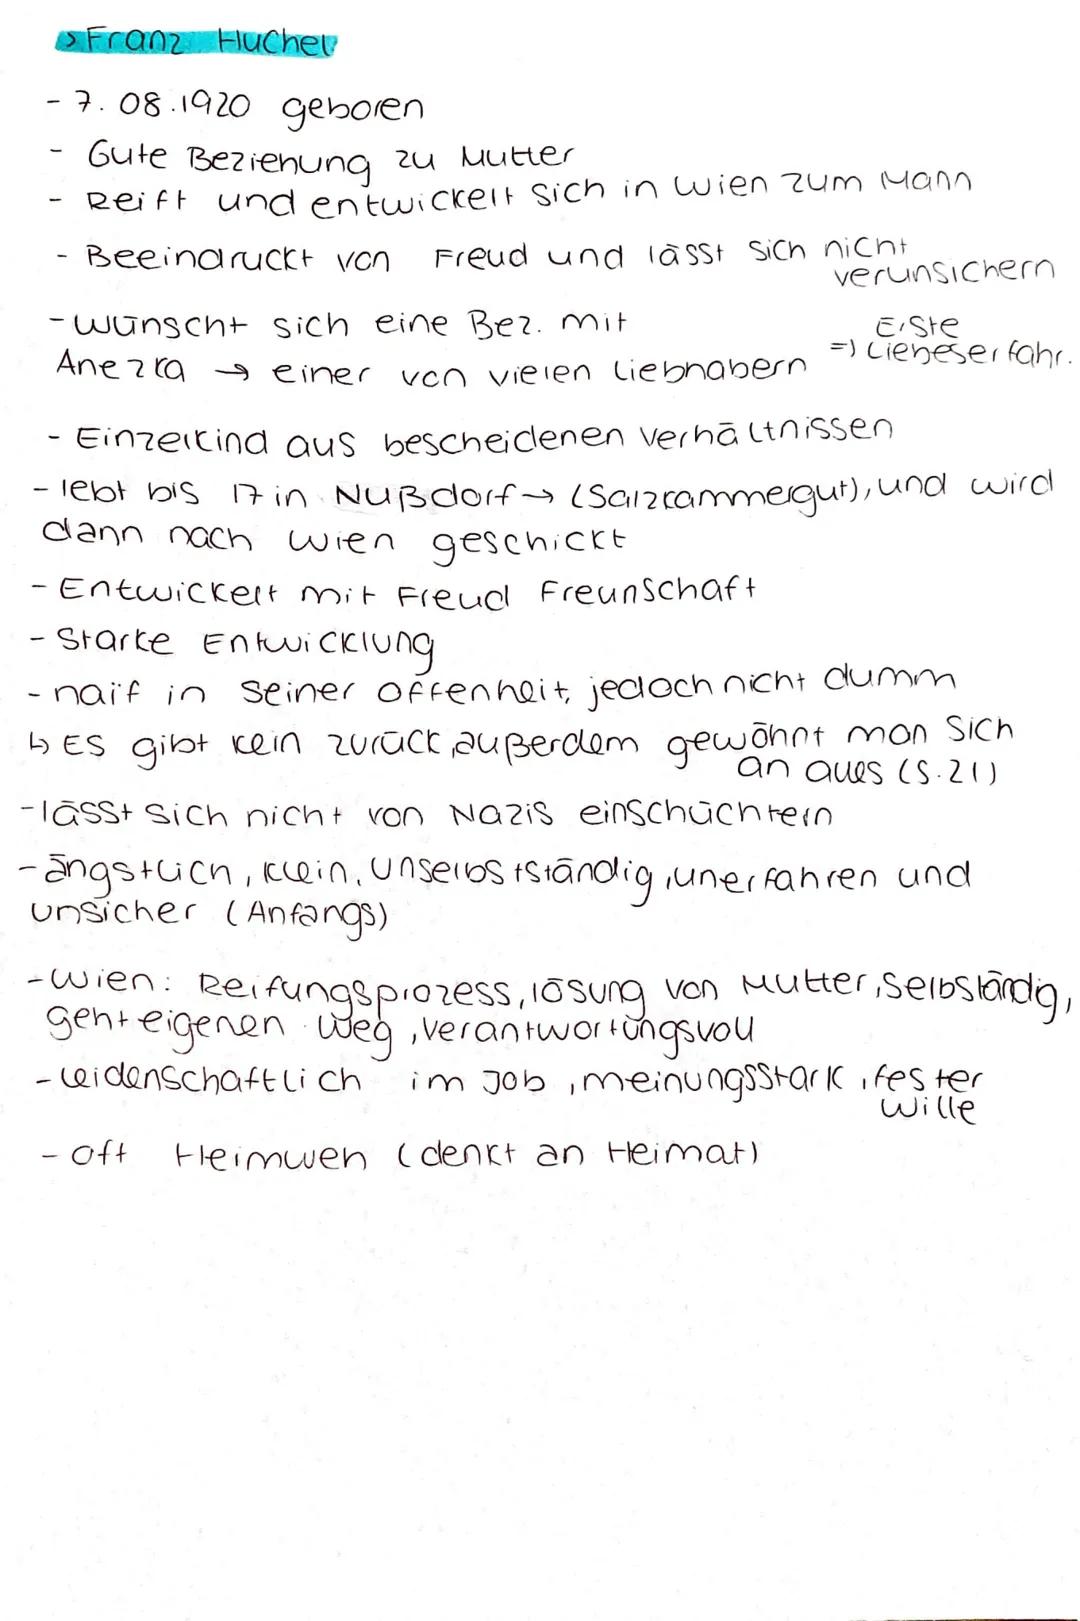 > Franz Huchel
- 7. 08.1920 geboren
- Gute Beziehung zu Mutter
- Reift und entwickelt sich in Wien zum Mann
- Beeindruckt von Freud und lässt sich nicht
verunsichern
- Wünscht sich eine Bez. mit
Anezka → einer von vielen Liebhabern
Erste
=> Liebeserfahr.
- Einzelkind aus bescheidenen Verhältnissen
- lebt bis 17 in Nußdorf → (Salzkammergut), und wird
dann nach Wien geschickt
- Entwickelt mit Freud Freunschaft
- Starke Entwicklung
- naïf in seiner Offenheit, jedoch nicht dumm
↳ ES gibt kein zurück, außerdem gewöhnt man sich
an alles (S.21)
- lässt sich nicht von Nazis einschüchtern
- ängstlich, klein, unselbstständig, unerfahren und
unsicher (Anfangs)
- Wien: Reifungsprozess, lösung von Mutter, selbständig,
geht eigenen Weg, verantwortungsvoll
- leidenschaftlich im Job, meinungsstark, fester
Wille
- oft Heimweh (denkt an Heimat)